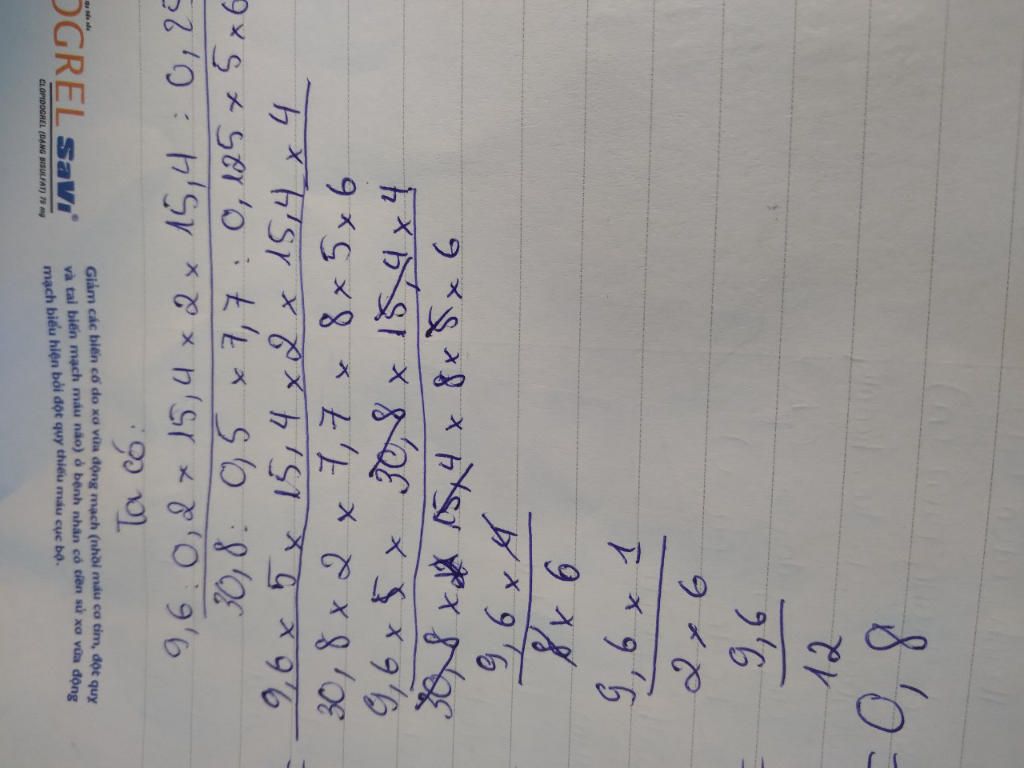 OGREL SaVi®
CLOPIDOGREL (DẠNG BISULFAT) 75 mg
Giảm các biến cố do xơ vữa động mạch (nhồi máu cơ tim, đột quỵ
và tai biến mạch máu não) ở bệnh nhân có tiền sử xơ vữa động
mạch biểu hiện bởi đột quỵ thiếu máu cục bộ.
Ta có:
9,6 : 0,2 × 15,4 × 2 × 15,4 : 0,25
30,8 : 0,5 × 7,7 : 0,125 × 5 × 6
= 9,6 × 5 × 15,4 × 2 × 15,4 × 4
30,8 × 2 × 7,7 × 8 × 5 × 6
9,6 × 5 × 30,8 × 15,4 × 4
30,8 × 15,4 × 8 × 5 × 6
9,6 × 4
8 × 6
9,6 × 1
2 × 6
= 9,6
12
= 0,8